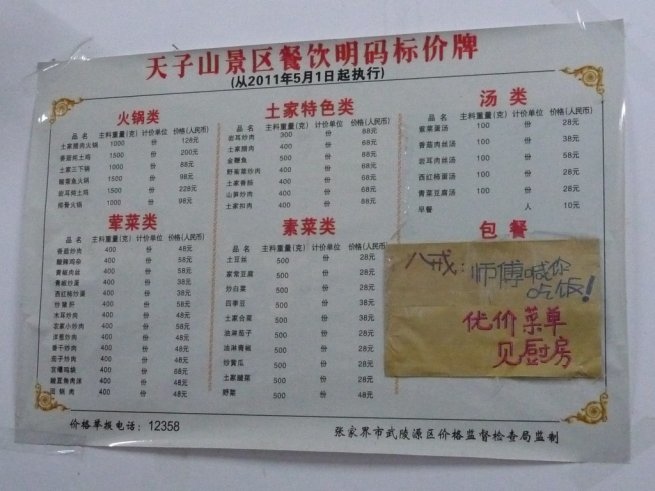 天子山景区餐饮明码标价牌
(从2011年5月1日起执行)
火锅类
品 名 主料重量(克) 计价单位 价格(人民币)
土家腊肉火锅 1000 份 128元
香菇炖土鸡 1500 份 200元
土家三下锅 1000 份 88元
酸菜鱼火锅 1500 份 98元
岩耳炖土鸡 1500 份 228元
排骨火锅 1000 份 98元
荤菜类
品 名 主料重量(克) 计价单位 价格(人民币)
香菇炒肉 400 份 48元
酸辣鸡杂 400 份 58元
青椒肉丝 400 份 58元
青椒炒蛋 400 份 38元
西红柿炒蛋 400 份 38元
炒猪肝 400 份 58元
木耳炒肉 400 份 48元
农家小炒肉 400 份 58元
洋葱炒肉 400 份 48元
香干炒肉 400 份 48元
茄子炒肉 400 份 48元
宫爆鸡 400 份 58元
酸豆角肉沫 400 份 48元
回锅肉 400 份 48元
土家特色类
品 名 主料重量(克) 计价单位 价格(人民币)
岩耳炒肉 300 份 68元
土家腊肉 400 份 68元
金鞭鱼 500 份 88元
野葱炒肉 400 份 68元
土家香肠 400 份 68元
山笋炒肉 400 份 68元
土家扣肉 400 份 68元
素菜类
品 名 主料重量(克) 计价单位 价格(人民币)
土豆丝 500 份 28元
家常豆腐 500 份 28元
炒白菜 500 份 28元
四季豆 500 份 28元
土家合菜 500 份 38元
油淋茄子 500 份 28元
油淋青椒 500 份 28元
炒黄瓜 500 份 28元
土家酸菜 500 份 28元
野菜 500 份 48元
汤类
品 名 主料重量(克) 计价单位 价格(人民币)
紫菜蛋汤 100 份 28元
香菇肉丝汤 100 份 38元
岩耳肉丝汤 100 份 58元
西红柿蛋汤 100 份 28元
青菜豆腐汤 100 份 28元
早餐 人 10元
包餐
八戒:师傅喊你
吃饭!
优价菜单
见厨房
价格举报电话:12358
张家界市武陵源区价格监督检查局监制